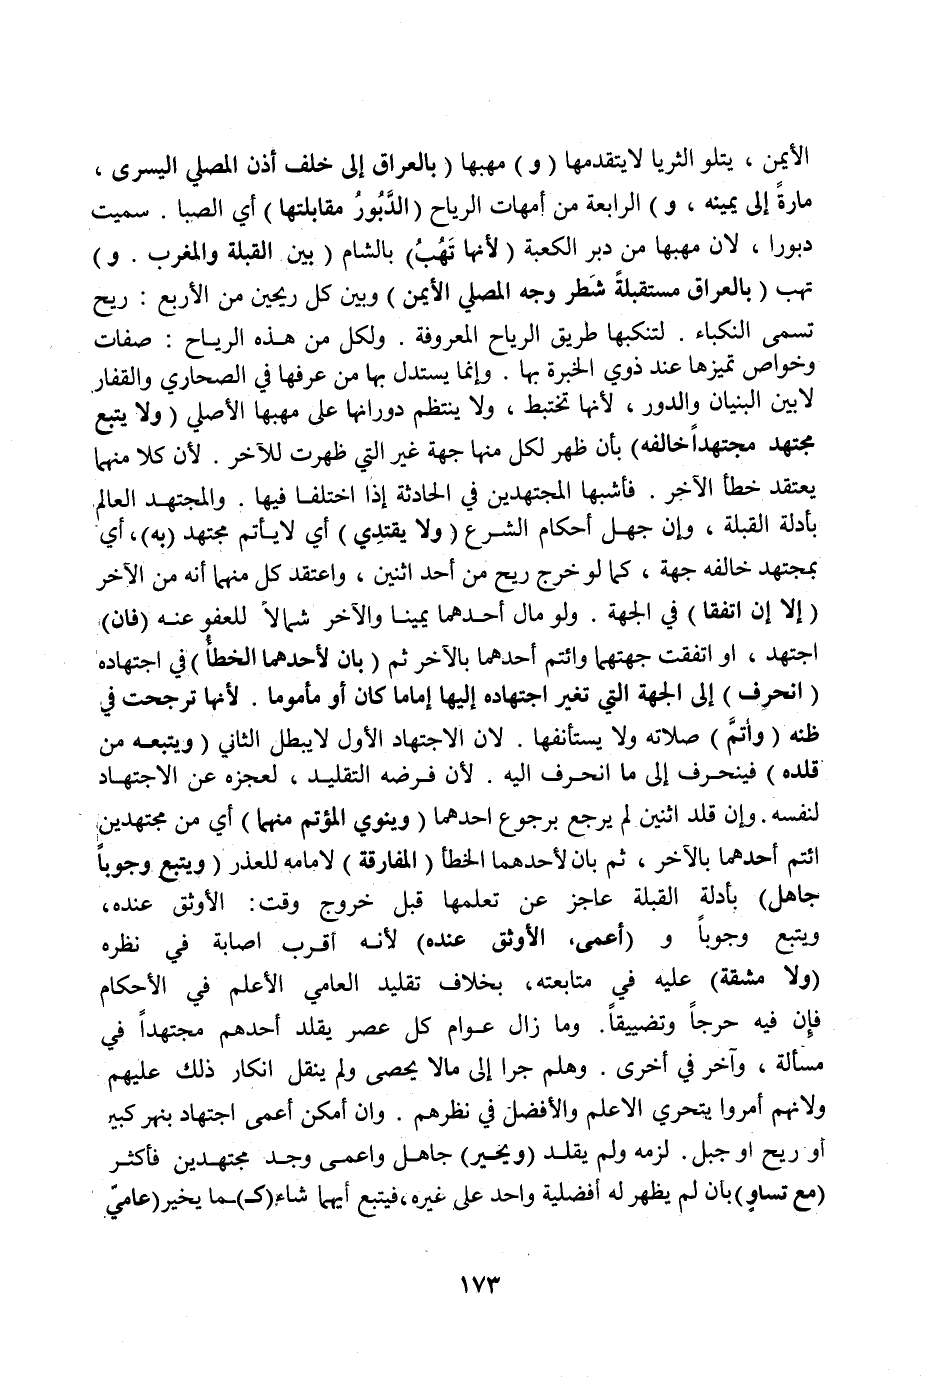 الأيمن ، يتلو الثريا لايتقدمها ( و ) مهبها ( بالعراق إلى خلف أذن المصلي اليسرى ،
مارةً إلى يمينه ، و ) الرابعة من أمهات الرياح ( الدَّبُورُ مقابلتها ) أي الصبا . سميت
دبورا ، لان مهبها من دبر الكعبة ( لأنها تَهُبُ) بالشام ( بين القبلة والمغرب . و )
تهب ( بالعراق مستقبلةً شَطر وجه المصلي الأيمن ) وبين كل ريحين من الأربع : ريح
تسمى النكباء . لتنكبها طريق الرياح المعروفة . ولكل من هذه الرياح : صفات
وخواص تميزها عند ذوي الخبرة بها . وإنما يستدل بها من عرفها في الصحاري والقفار
لابين البنيان والدور ، لأنها تختبط ، ولا ينتظم دورانها على مهبها الأصلي ( ولا يتبع
مجتهد مجتهداً خالفه) بأن ظهر لكل منها جهة غير التي ظهرت للآخر . لأن كلا منهما
يعتقد خطأ الآخر . فأشبها المجتهدين في الحادثة إذا اختلفا فيها . والمجتهد العالم
بأدلة القبلة ، وإن جهل أحكام الشرع ( ولا يقتدِي ) أي لايأتم مجتهد (به)، أي
بمجتهد خالفه جهة ، كما لو خرج ريح من أحد اثنين ، واعتقد كل منهما أنه من الآخر
( إلا إن اتفقا ) في الجهة . ولو مال أحدهما يمينا والآخر شمالاً للعفو عنه (فان)
اجتهد ، او اتفقت جهتهما وائتم أحدهما بالآخر ثم ( بان لأحدهما الخطأُ ) في اجتهاده
( انحرف ) إلى الجهة التي تغير اجتهاده إليها إماما كان أو مأموما . لأنها ترجحت في
ظنه ( وأتمَّ ) صلاته ولا يستأنفها . لان الاجتهاد الأول لايبطل الثاني ( ويتبعه من
قلده ) فينحرف إلى ما انحرف اليه . لأن فرضه التقليد ، لعجزه عن الاجتهاد
لنفسه . وإن قلد اثنين لم يرجع برجوع احدهما ( وينوي المؤتم منهما ) أي من مجتهدين
ائتم أحدهما بالآخر ، ثم بان لأحدهما الخطأ ( المفارقة ) لامامه للعذر ( ويتبع وجوباً
جاهل) بأدلة القبلة عاجز عن تعلمها قبل خروج وقت: الأوثق عنده،
ويتبع وجوباً و (أعمى، الأوثق عنده) لأنه أقرب اصابة في نظره
(ولا مشقة) عليه في متابعته، بخلاف تقليد العامي الأعلم في الأحكام
فإن فيه حرجاً وتضييقاً. وما زال عوام كل عصر يقلد أحدهم مجتهداً في
مسألة ، وآخر في أخرى . وهلم جرا إلى مالا يحصى ولم ينقل انكار ذلك عليهم
ولانهم أمروا يتحري الاعلم والأفضل في نظرهم . وان أمكن أعمى اجتهاد بنهر كبير
أو ريح او جبل . لزمه ولم يقلد (ويخير) جاهل واعمى وجد مجتهدين فأكثر
(مع تساوٍ) بان لم يظهر له أفضلية واحد على غيره، فيتبع أيهما شاء (كـ)ـما يخير (عاميّ
١٧٣